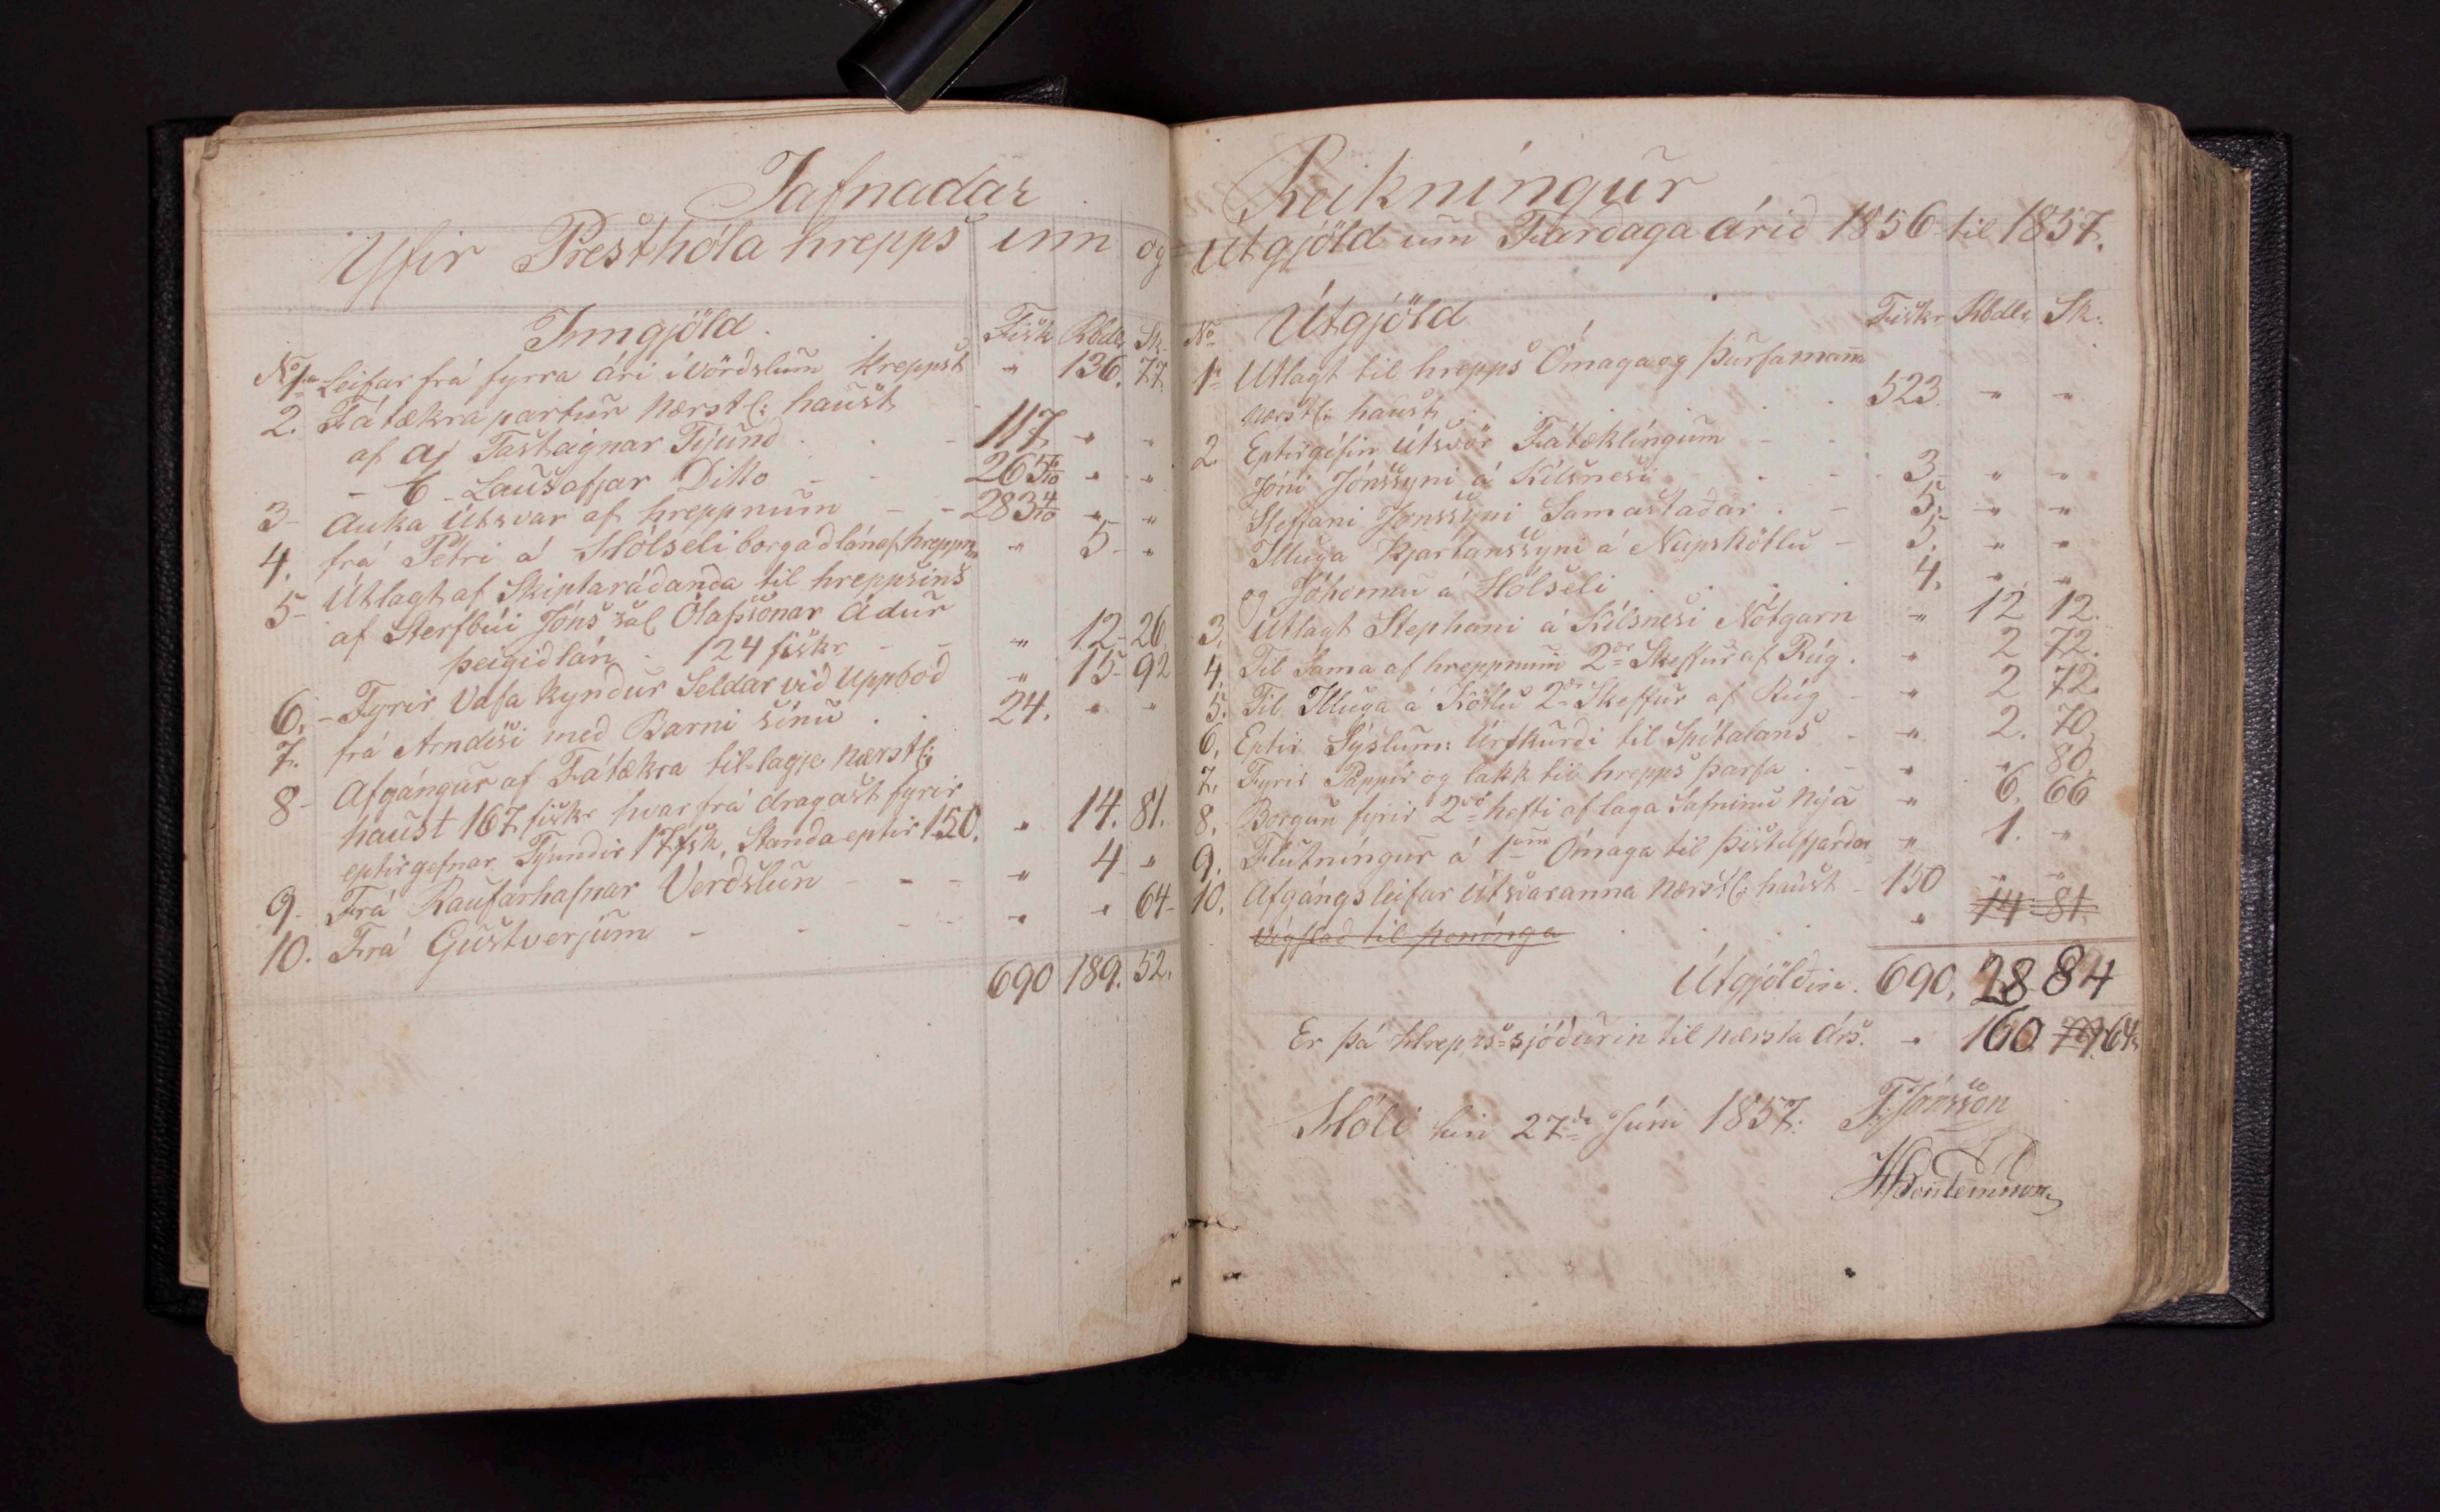 Jafnadar
Yfir Presthóla hrepps inn og
Inngjöld. Fisk Rbdlr Sk.
No 1 Leifar frá fyrra ári í vördslum Hreppst " 136. 77.
2. Fátækra partur næstl: haust
af a, Fasteignar Tíjund 117 " "
- b - Lausafjar Ditto 265 6/10 " "
3- Auka Útsvar af hreppnum - - 283 4/10 " "
4. frá Pétri á Hólseli borgad lán af hreppn " 5 - "
5- Útlagt af Skiptarádanda til hreppsins
af Sterfbúi Jóns sál Ólafssonar Ádur
þeigid lán - 124 fiskr - - " 12 - 26
6. - Fyrir Vafa kyndur Seldar vid Uppbod " 15 - 92
7. frá Arndísi med Barni sínu . . 24. " "
8- Afgángur af Fátækra til-lagje næstl:
haust 167 fiskr hvar frá dragast fyrir
eptirgefnar Tíjundir 17 fsk, Standa eptir 150. " 14. 81.
9. Frá Raufarhafnar Verdslun - - - " 4 - "
10. Frá Gustverjum - - - " " 64 -
690 189. 52.
Reikníngur
útgjöld um Fardaga árid 1856 til 1857.
No Útgjöld Fiskr Rbdlr Sk:
1 Utlagt til hrepps Ómaga og þurfamann
næstl: haust . . . . 523. " "
2. Eptirgéfin Útsvör Fátæklíngum -
Jóni Jónssyni á Kílsnesi - - 3. " "
Steffani Jonssyni Samastadar . - 5. " "
Illuga Kjartanssyni á Núpskötlu - 5. " "
og Jóhonnu á Hólseli . . . 4. " "
3. Utlagt Stephani á Kílsnesi Nótgarn " 12 12.
4. Til Sama af hreppnum 2ar Skeffur af Rúg . " 2 72.
5. Til Illuga á Kötlu 2ar Skeffur af Rúg - " 2 72.
6. Eptir Sýslum: Úrskurdi til Spítalans - " 2. 70
7. Fyrir Pappír og lakk til hrepps þarfa . - " " 80
8. Borgun fyrir 2að hefti af laga Safninu Nýa " 6. 66
9. Flutníngur á 1um Ómaga til þistilfjardar " 1. "
10. Afgángs leifar Útsvaranna næstl: haust - 150 " "
til peninga " 14 81.
Útgjöldin. 690. 28 84
Er þá Hrepps-sjódurin til næsta Árs. " 160. 64
Hóli hin 27da Júni 1857. Jónsson